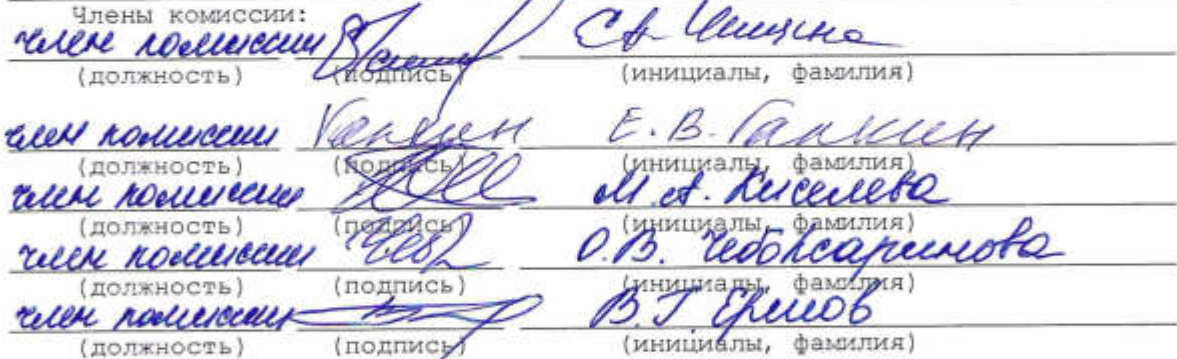 Члены комиссии:
член комиссии С.А.
(должность) (подпись) (инициалы, фамилия)
член комиссии Галкин Е.В. Галкин
(должность) (подпись) (инициалы, фамилия)
член комиссии М.А. Киселева
(должность) (подпись) (инициалы, фамилия)
член комиссии О.В.
(должность) (подпись) (инициалы, фамилия)
член комиссии В.Г. Ершов
(должность) (подпись) (инициалы, фамилия)